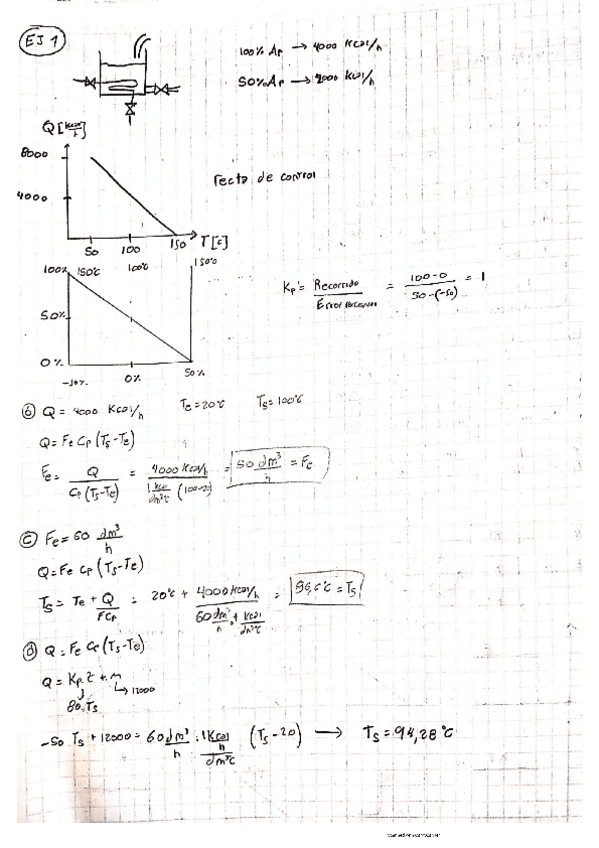 EJ 1
100% Ap → 4000 Kcal/h
50% Ap → 2000 Kcal/h
Q [Kcal/h]
8000
4000
50 100 150 T [°C]
recta de control
100% 150°C 100°C 150°C
50%
0%
-50% 0% 50%
Kp = Recorrido / Error = 100-0 / 50-(-50) = 1
b) Q = 4000 Kcal/h Te = 20°C Ts = 100°C
Q = Fe Cp (Ts - Te)
Fe = Q / Cp (Ts - Te) = 4000 Kcal/h / 1 Kcal/dm³°C (100-20) = 50 dm³/h = Fe
c) Fe = 60 dm³/h
Q = Fe Cp (Ts - Te)
Ts = Te + Q / FCp = 20°C + 4000 Kcal/h / 60 dm³/h · 1 Kcal/dm³°C = 86,6°C = Ts
d) Q = Fe Cp (Ts - Te)
Q = Kp · ε + m
→ 12000
80 · Ts
-80 Ts + 12000 = 60 dm³/h · 1 Kcal/h / dm³°C (Ts - 20) → Ts = 94,28 °C